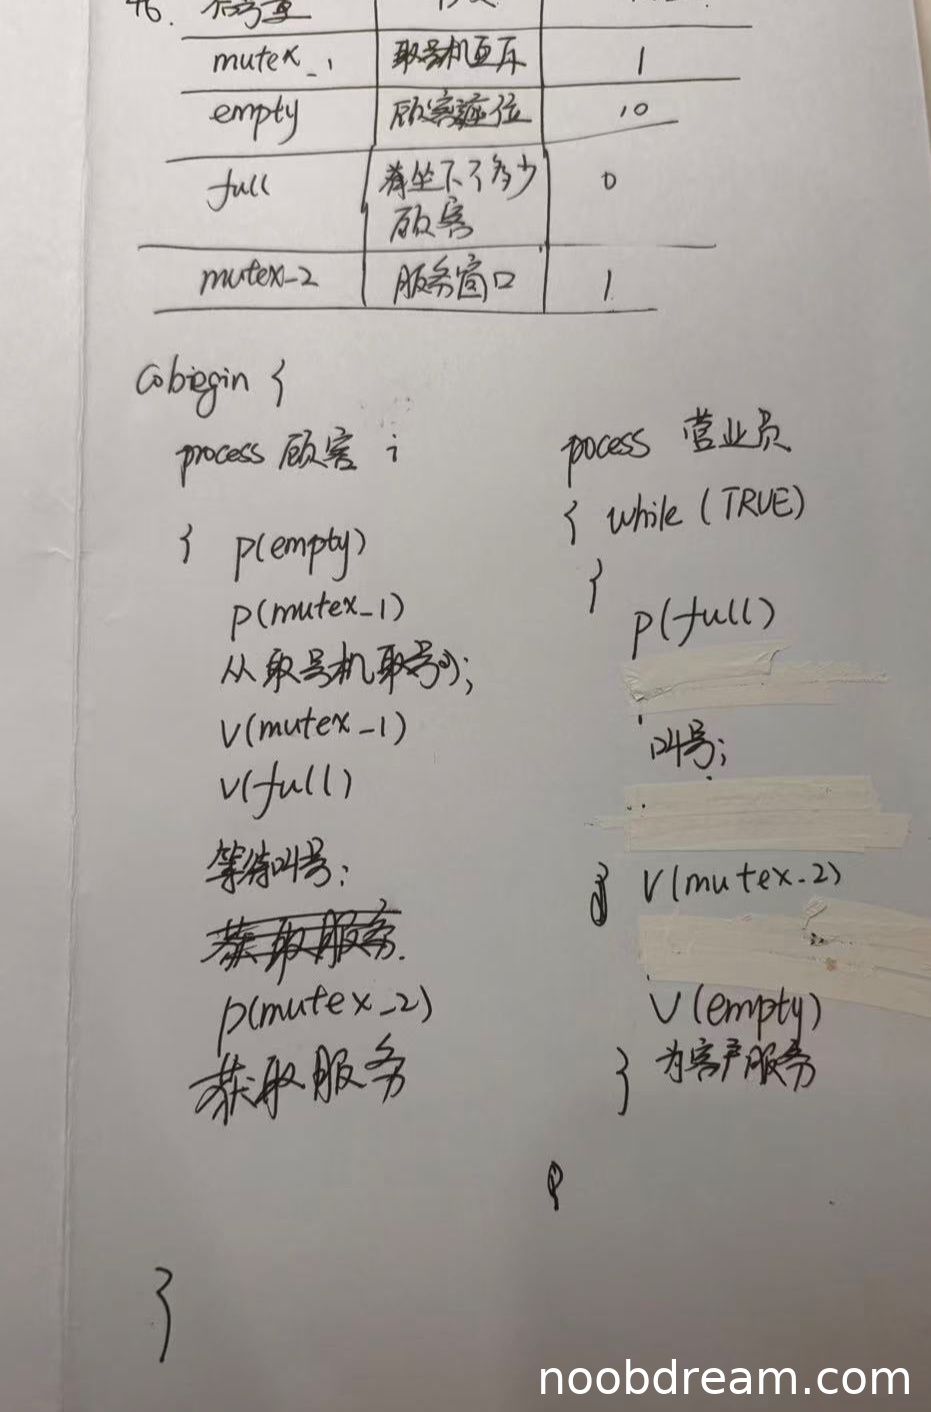 46. 信号量
mutex_1 取号机互斥 1
empty 顾客座位 10
full 有坐下了多少顾客 0
mutex_2 服务窗口 1
Cobiegin {
process 顾客 i
{ p(empty)
p(mutex_1)
从取号机取号;
v(mutex_1)
v(full)
等待叫号;
获取服务.
p(mutex_2)
获取服务
}
pocess 营业员
{ while (TRUE)
{
p(full)
叫号;
v(mutex_2)
v(empty)
} 为客户服务
noobdream.com